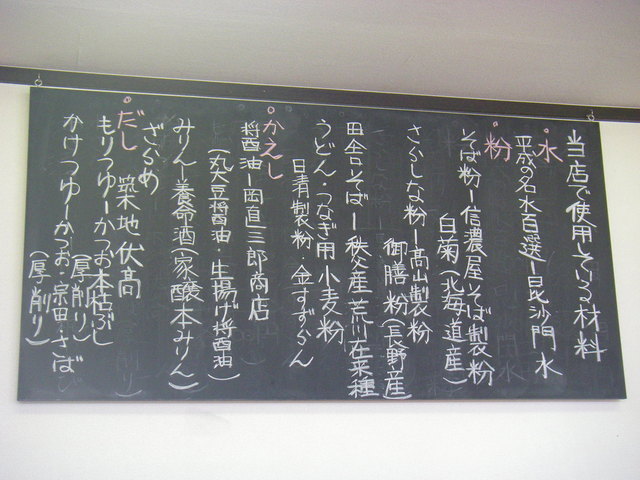 当店で使用している材料
水
平成の名水百選ー毘沙門水
粉
そば粉ー信濃屋そば製粉
白菊(北海道産)
さらしな粉ー高山製粉
御膳粉(長野産)
田舎そばー秩父産荒川在来種
うどん・つなぎ用小麦粉
日清製粉・金すずらん
かえし
醤油ー岡直三郎商店
(丸大豆醤油・生揚げ醤油)
みりんー養命酒(家醸本みりん)
ざらめ
だし 築地伏高
もりつゆーかつお本枯ぶし
(厚削り)
かけつゆーかつお・宗田・さば
(厚削り)